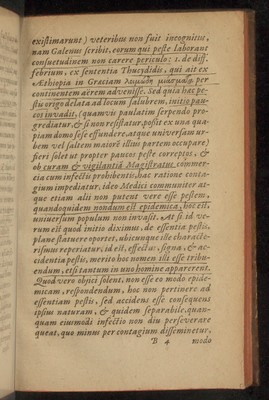 existimarunt) veteribus non fuit incognitus,
nam Galenus scribit, eorum qui peste laborant
consuetudinem non carere periculo: 1. de diff.
febrium, ex sententia Thucydidis, qui ait ex
Æthiopia in Græciam
continentem aërem advenisse. Sed quia hæc pe-
stis origo delata ad locum salubrem, initio pau-
cos invadit, (quamvis paulatim serpendo pro-
grediatur, & si non resistatur, possit ex una qua-
piam domo sese effundere, atque universam ur-
bem vel saltem maiorē illius partem occupare)
fieri solet ut propter paucos peste correptos, &
ob curam & vigilantiā Magistratus commer-
cia cum infectis prohibentis, hac ratione conta-
gium impediatur, ideo Medici communiter at-
que etiam alii non putent vere esse pestem,
quandoquidem nondum est epidemica, hoc est,
universum populum non invasit. At si id ve-
rum est quod initio diximus, de essentia pestis,
plane statuere oportet, ubicunque illæ characte-
rismus reperiatur, id est, effectus, signa, & ac-
cidentia pestis, merito hoc nomen illi esse tribu-
endum, etsi tantum in uno homine appareret.
Quod vero objici solent, non esse eo modo epide-
micam, respondendum, hoc non pertinere ad
essentiam pestis, sed accidens esse consequens
ipsius naturam, & quidem separabile, quan-
quam eiusmodi infectio non diu perseverare
queat, quo minus per contagium disseminetur,
B 4 modo